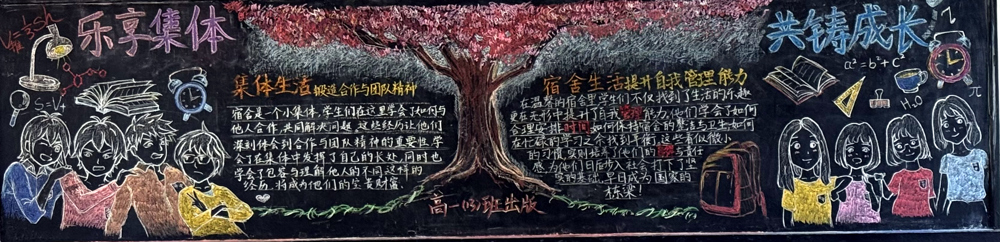 乐享集体
共铸成长
S=Vt
a²=b²+c²
H₂O
π
集体生活锻造合作与团队精神
宿舍是一个小集体，学生们在这里学会了如何与
他人合作，共同解决问题，这些经历让他们
深刻体会到合作与团队精神的重要性，学
会了在集体中发挥了自己的长处，同时也
学会了包容与理解他人的不同，这样的
经历，将成为他们的宝贵财富。
宿舍生活提升自我管理能力
在温馨的宿舍里，学生们不仅找到了生活的乐趣
更在无形中提升了自我管理能力，他们学会了如何
合理安排时间，如何保持宿舍的整洁卫生，如何
在忙碌的学习之余找到平衡，这些看似微小
的习惯，实则培养了他们的
感，为他们日后步入社会打下了坚
实的基础，早日成为国家的
栋梁！
高一(13)班出版